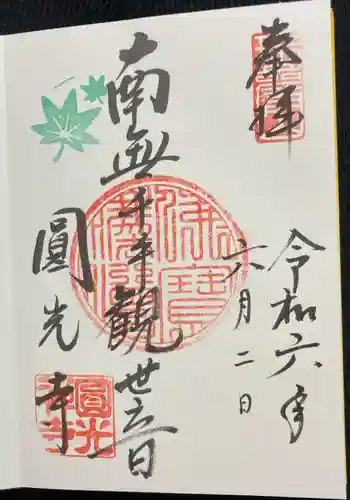 奉拝
令和六年
六月二日
南無千手観世音
圓光寺